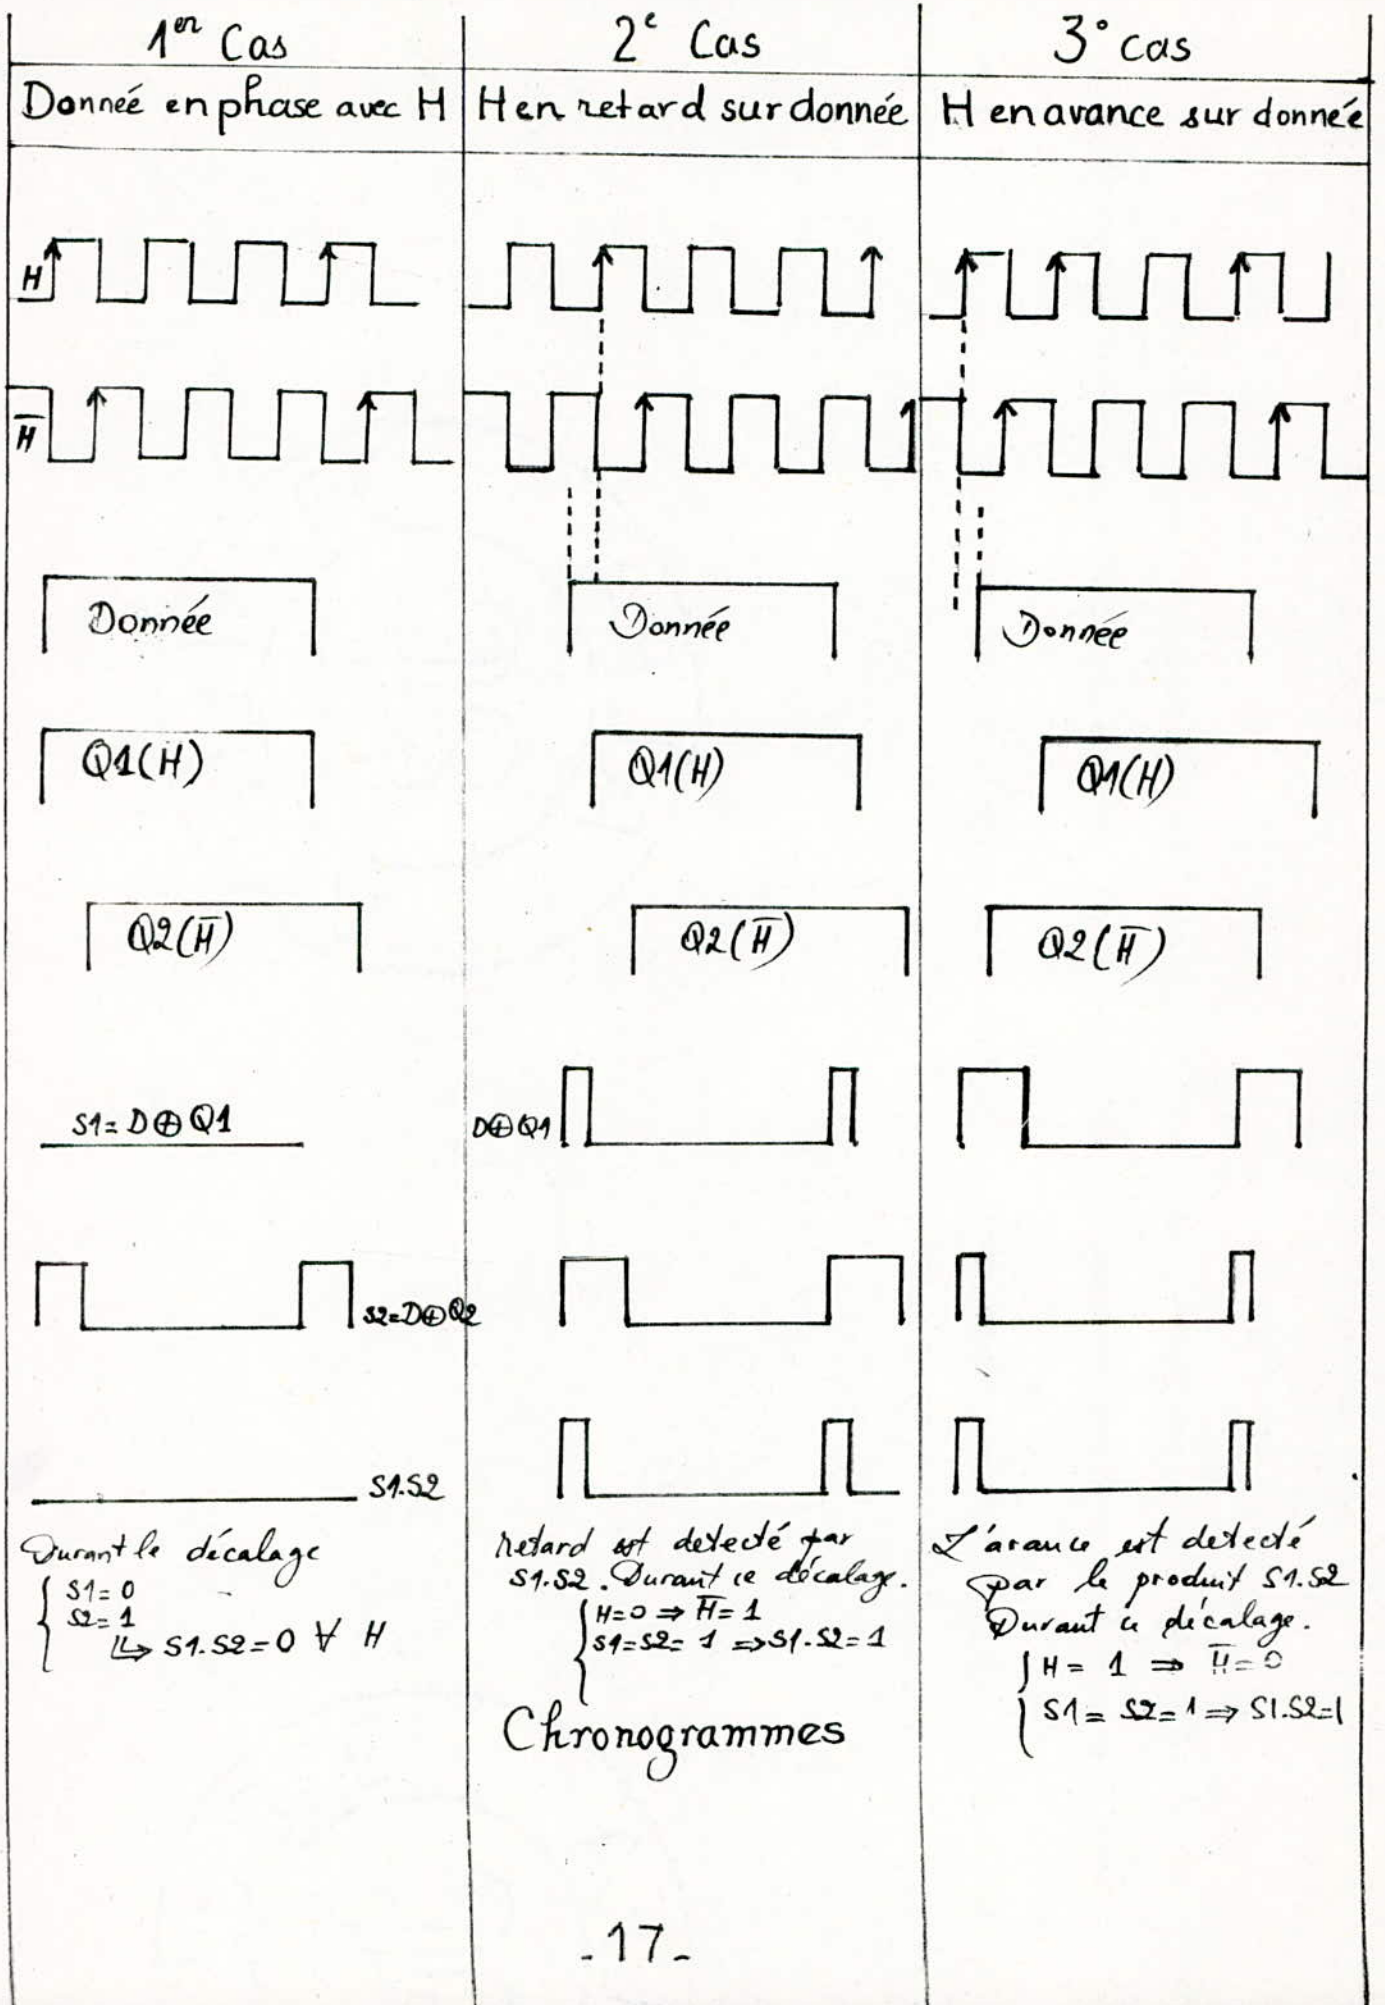 1er Cas
Donneé en phase avec H
H
H̅
Donnée
Q1(H)
Q2(H̅)
S1= D⊕Q1
S2=D⊕Q2
S1.S2
Durant le décalage
S1=0
S2=1
↳ S1.S2=0 ∀ H
2e Cas
H en retard sur donnée
Donnée
Q1(H)
Q2(H̅)
D⊕Q1
retard est detecté par
S1.S2. Durant ce décalage.
H=0 ⇒ H̅=1
S1=S2= 1 ⇒ S1.S2=1
Chronogrammes
3° cas
H en avance sur donnée
Donnée
Q1(H)
Q2(H̅)
L'avance est detecté
par le produit S1.S2
Durant ce décalage.
H= 1 ⇒ H̅=0
S1= S2=1 ⇒ S1.S2=1
-17-